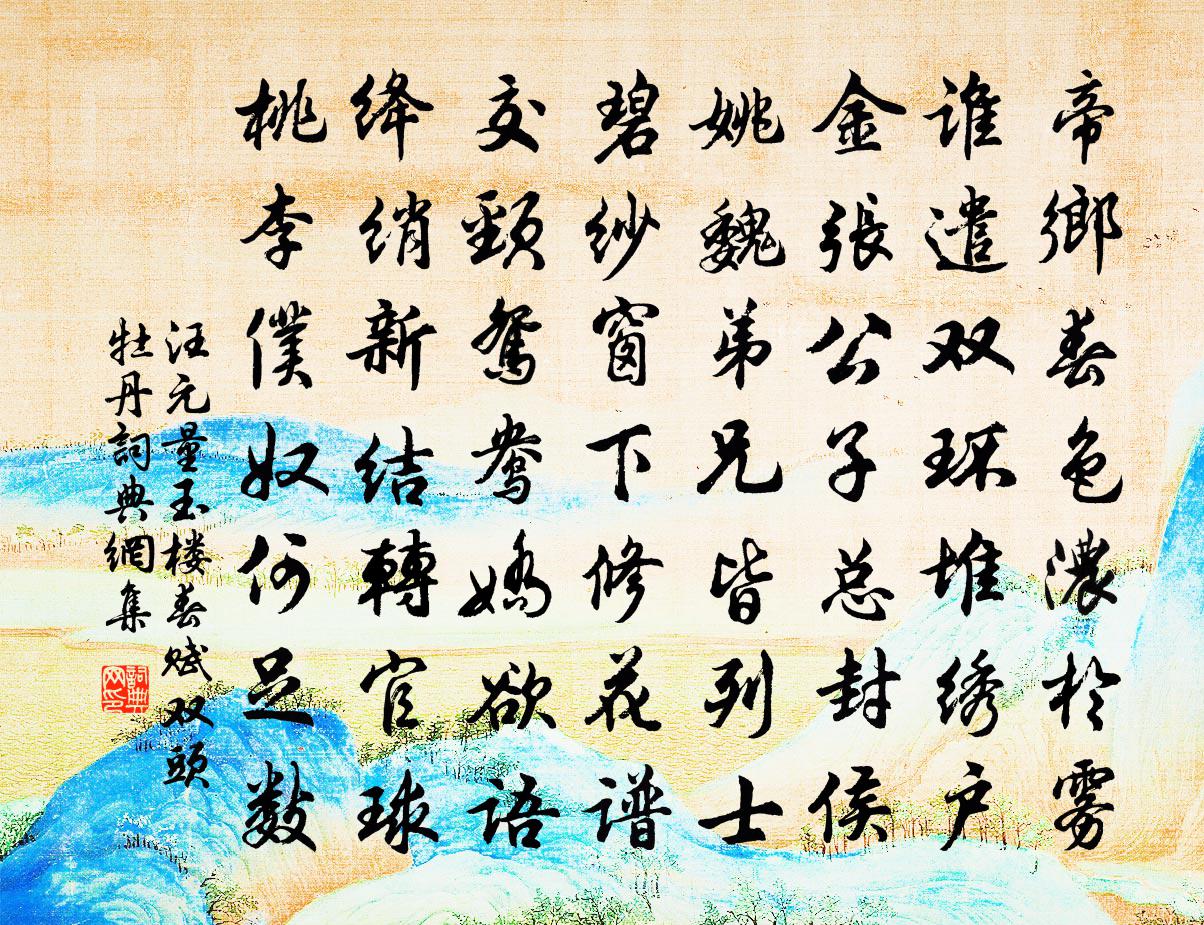 帝鄉春色濃於雾
谁遣双环堆绣户
金張公子总封侯
姚魏弟兄皆列士
碧纱窗下修花谱
交頸鴛鴦嬌欲语
绛绡新结轉官球
桃李僕奴何足数
汪元量玉楼春赋双頭
牡丹詞典網集
詞典
网印